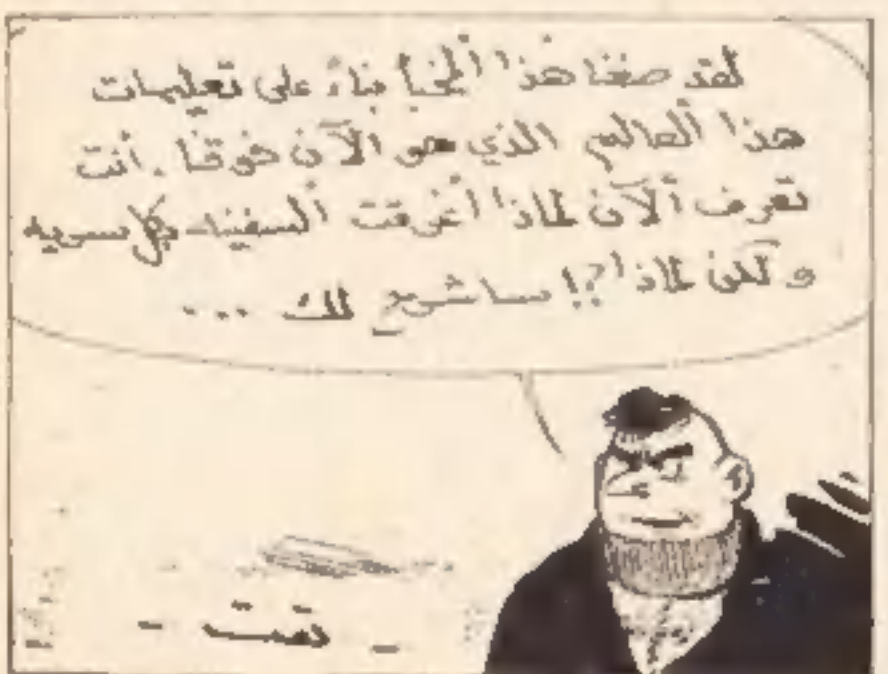 لقد صنعنا هذا ألمخبأ بناءً على تعليمات
هذا ألعالم الذي هو الآن فوقنا. أنت
تعرف ألآن لماذا أغرقت ألسفينه بكل سريه
ولكن لماذا؟! سأشرح لك ...
- تمت -